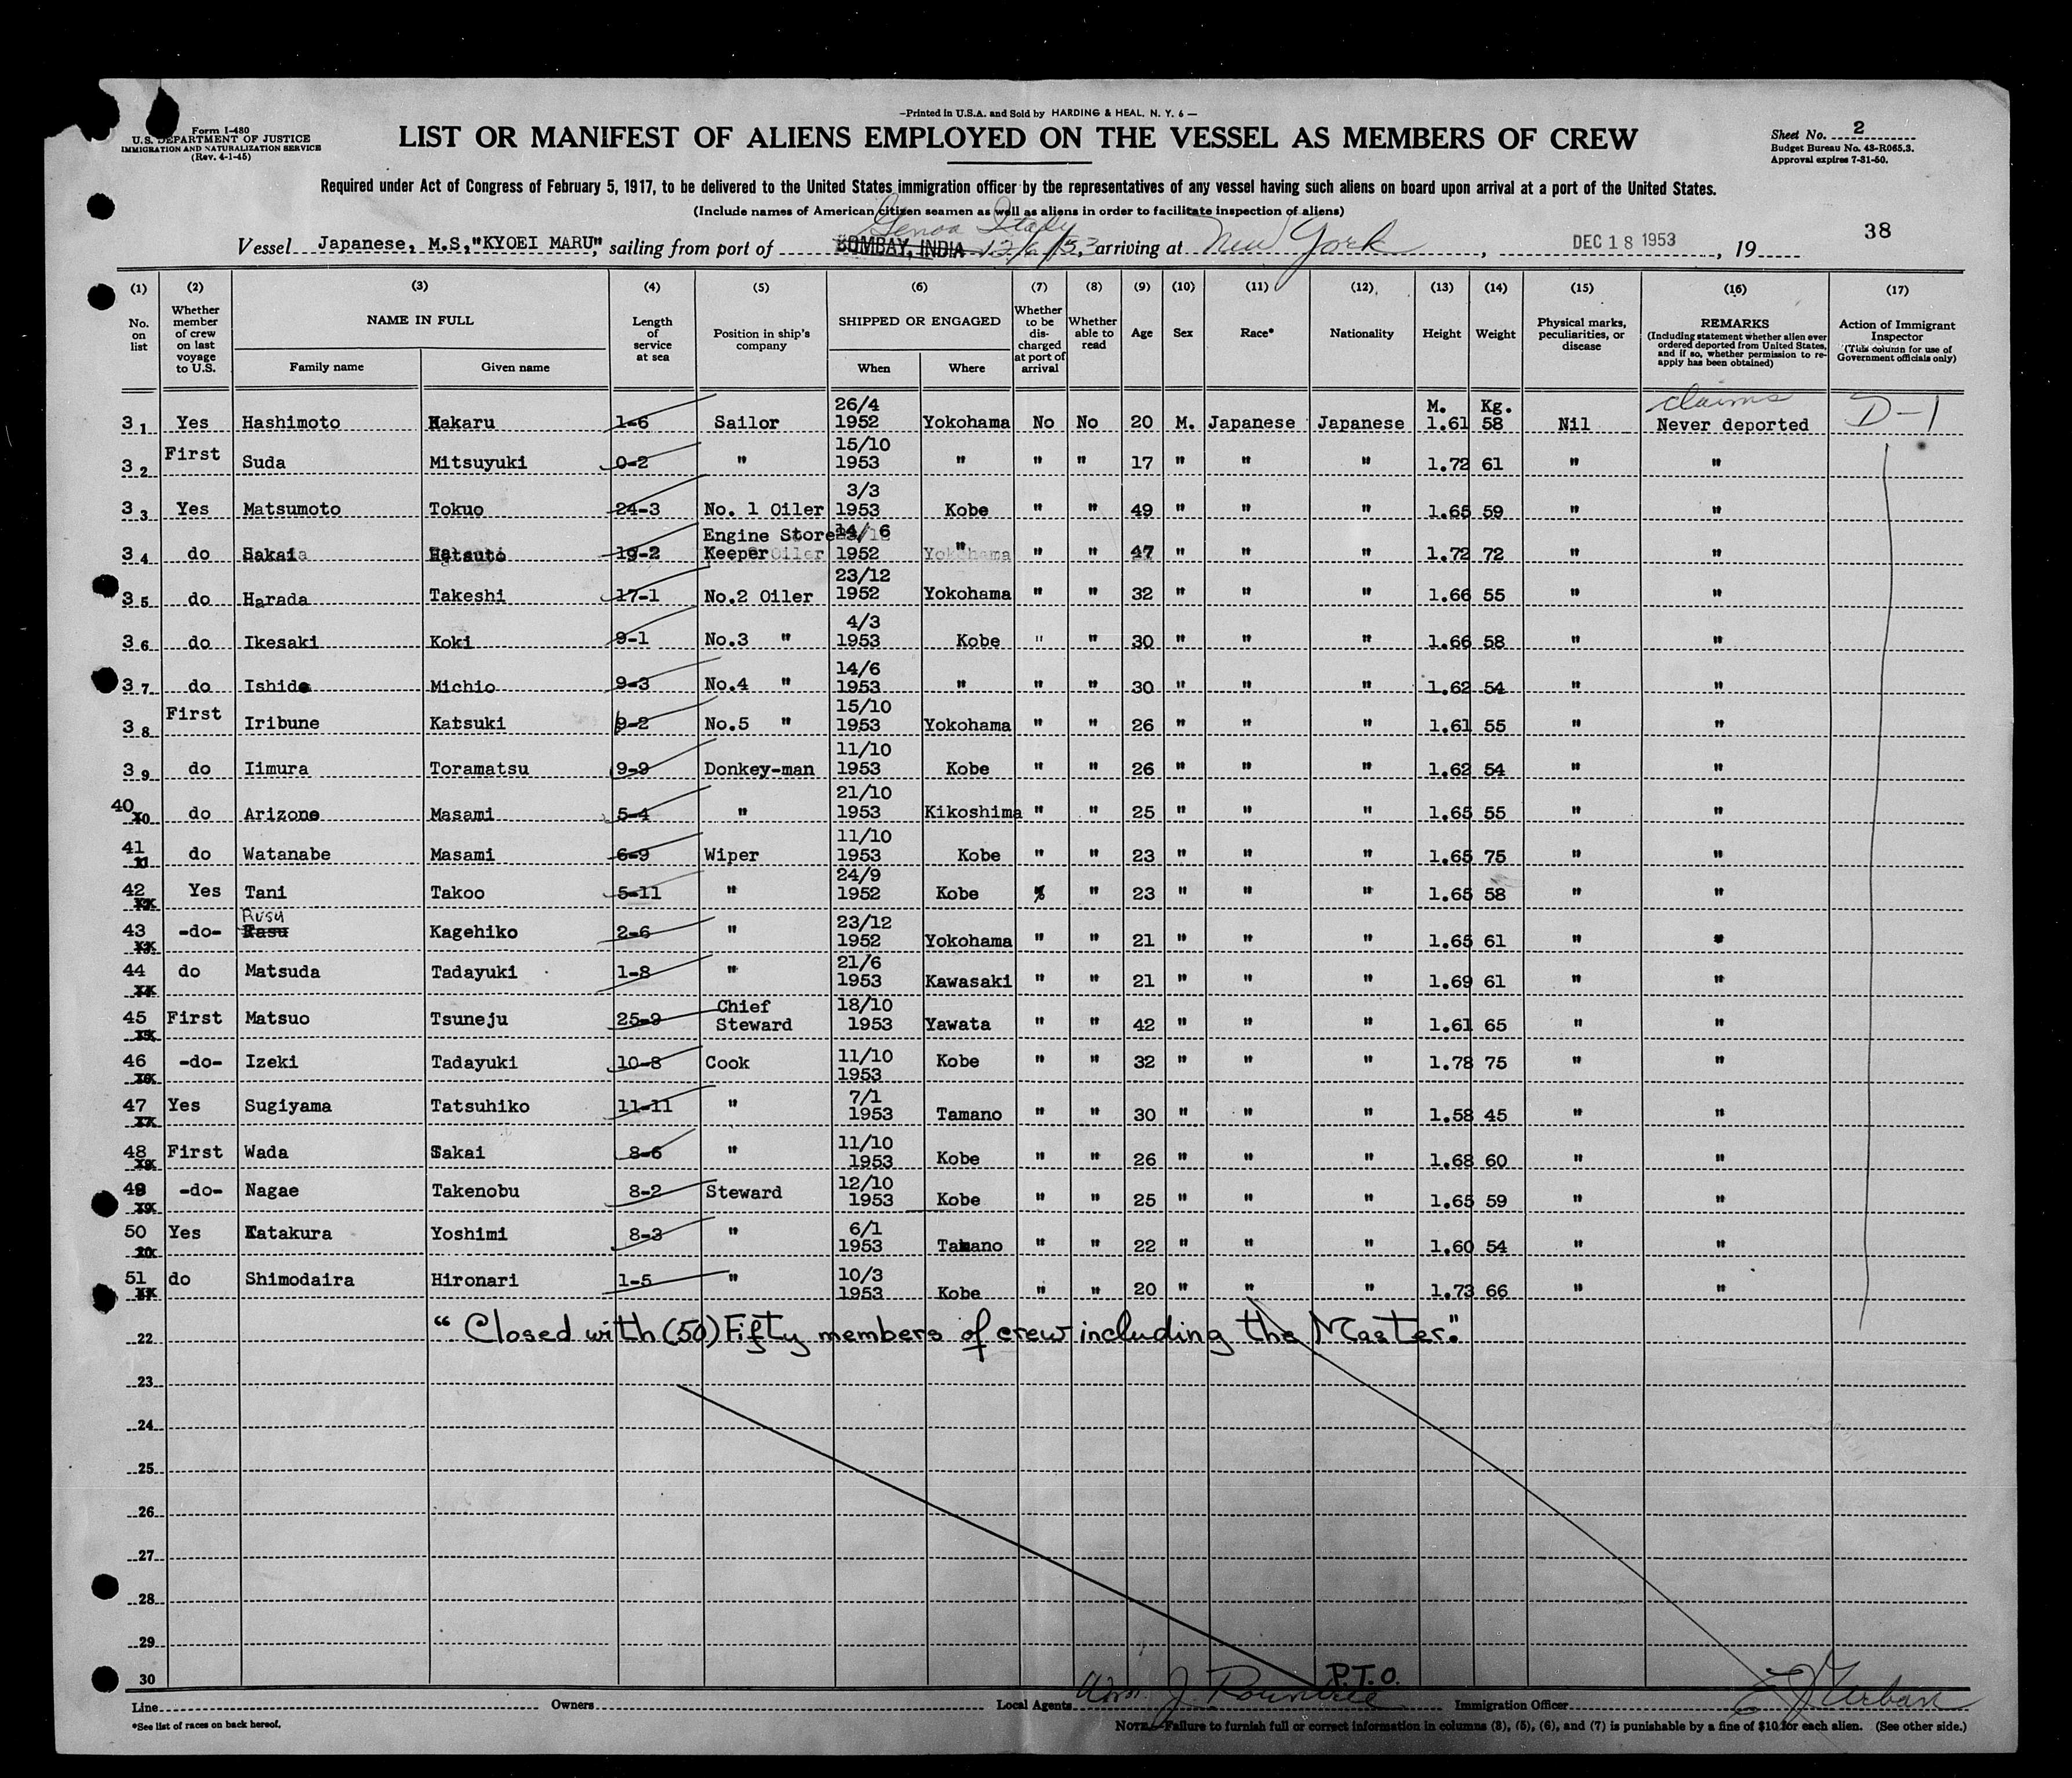 —Printed in U.S.A. and Sold by HARDING & HEAL, N. Y. 6—
Form I-480
U.S. DEPARTMENT OF JUSTICE
IMMIGRATION AND NATURALIZATION SERVICE
(Rev. 4-1-45)
LIST OR MANIFEST OF ALIENS EMPLOYED ON THE VESSEL AS MEMBERS OF CREW
Sheet No. 2
Budget Bureau No. 43-R065.3.
Approval expires 7-31-50.
Required under Act of Congress of February 5, 1917, to be delivered to the United States immigration officer by the representatives of any vessel having such aliens on board upon arrival at a port of the United States.
(Include names of American citizen seamen as well as aliens in order to facilitate inspection of aliens)
Genoa Italy
Vessel Japanese, M.S,"KYOEI MARU", sailing from port of BOMBAY, INDIA 12/6/53, arriving at New York, DEC 18 1953, 19
38
(1) No. on list
(2) Whether member of crew on last voyage to U.S.
(3) NAME IN FULL Family name Given name
(4) Length of service at sea
(5) Position in ship's company
(6) SHIPPED OR ENGAGED When Where
(7) Whether to be discharged at port of arrival
(8) Whether able to read
(9) Age
(10) Sex
(11) Race*
(12) Nationality
(13) Height
(14) Weight
(15) Physical marks, peculiarities, or disease
(16) REMARKS (Including statement whether alien ever ordered deported from United States, and if so, whether permission to reapply has been obtained)
(17) Action of Immigrant Inspector (This column for use of Government officials only)
M. Kg. claims
31 Yes Hashimoto Hakaru 1-6 Sailor 26/4 1952 Yokohama No No 20 M. Japanese Japanese 1.61 58 Nil Never deported D-1
32 First Suda Mitsuyuki 0-2 " 15/10 1953 " " " 17 " " " 1.72 61 " "
33 Yes Matsumoto Tokuo 24-3 No. 1 Oiler 3/3 1953 Kobe " " 49 " " " 1.65 59 " "
34 do Sakai 19-2 Engine Store Keeper 14/6 1952 " " " 47 " " " 1.72 72 " "
35 do Harada Takeshi 17-1 No.2 Oiler 23/12 1952 Yokohama " " 32 " " " 1.66 55 " "
36 do Ikesaki Koki 9-1 No.3 " 4/3 1953 Kobe " " 30 " " " 1.66 58 " "
37 do Ishida Michio 9-3 No.4 " 14/6 1953 " " " 30 " " " 1.62 54 " "
38 First Iribune Katsuki 9-2 No.5 " 15/10 1953 Yokohama " " 26 " " " 1.61 55 " "
39 do Iimura Toramatsu 9-9 Donkey-man 11/10 1953 Kobe " " 26 " " " 1.62 54 " "
40 do Arizono Masami 5-4 " 21/10 1953 Kikoshima " " 25 " " " 1.65 55 " "
41 do Watanabe Masami 6-9 Wiper 11/10 1953 Kobe " " 23 " " " 1.65 75 " "
42 Yes Tani Takoo 5-11 " 24/9 1952 Kobe " " 23 " " " 1.65 58 " "
43 -do- Rusu Kagehiko 2-6 " 23/12 1952 Yokohama " " 21 " " " 1.65 61 " "
44 do Matsuda Tadayuki 1-8 " 21/6 1953 Kawasaki " " 21 " " " 1.69 61 " "
45 First Matsuo Tsuneju 25-9 Chief Steward 18/10 1953 Yawata " " 42 " " " 1.61 65 " "
46 -do- Izeki Tadayuki 10-8 Cook 11/10 1953 Kobe " " 32 " " " 1.78 75 " "
47 Yes Sugiyama Tatsuhiko 11-11 " 7/1 1953 Tamano " " 30 " " " 1.58 45 " "
48 First Wada Sakai 8-6 " 11/10 1953 Kobe " " 26 " " " 1.68 60 " "
49 -do- Nagae Takenobu 8-2 Steward 12/10 1953 Kobe " " 25 " " " 1.65 59 " "
50 Yes Katakura Yoshimi 8-3 " 6/1 1953 Tamano " " 22 " " " 1.60 54 " "
51 do Shimodaira Hironari 1-5 " 10/3 1953 Kobe " " 20 " " " 1.73 66 " "
22 "Closed with (50) Fifty members of crew including the Master."
23
24
25
26
27
28
29
30 P.T.O.
Line Owners Local Agents Wm. J. Rountree Immigration Officer E J Urban
*See list of races on back hereof.
NOTE.—Failure to furnish full or correct information in columns (3), (5), (6), and (7) is punishable by a fine of $10 for each alien. (See other side.)